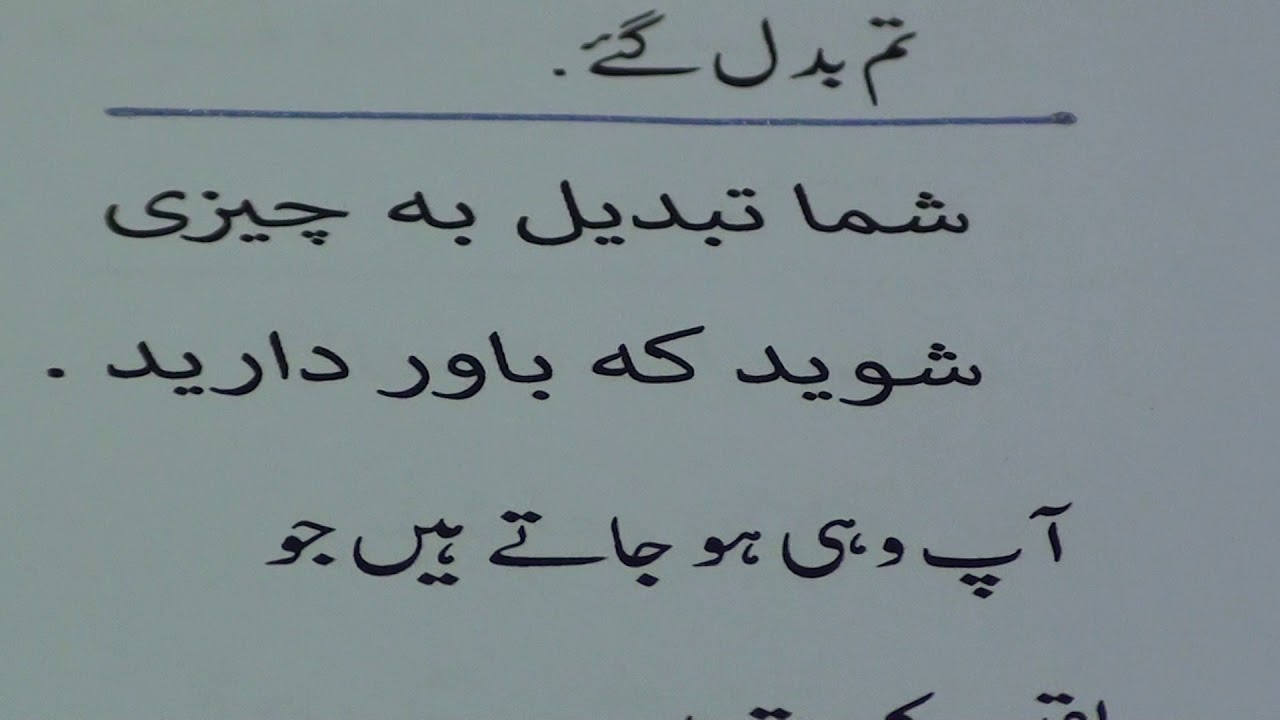 تم بدل گئے .
شما تبدیل به چیزی
شوید که باور دارید .
آپ وہی ہو جاتے ہیں جو